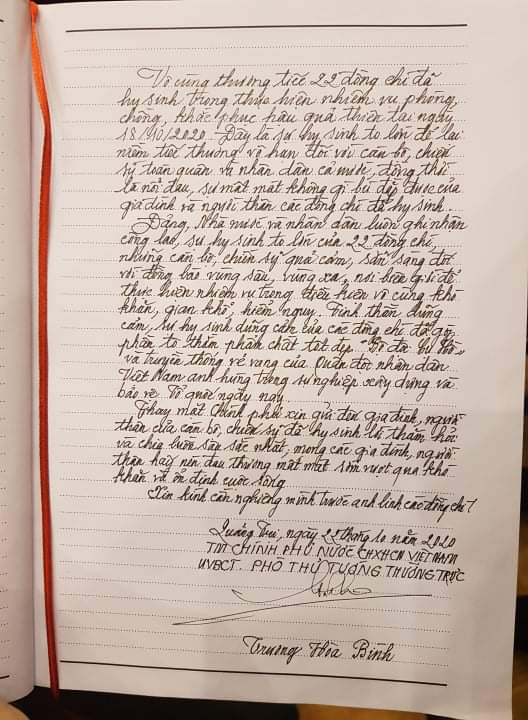 Vô cùng thương tiếc 22 đồng chí đã
hy sinh trong thực hiện nhiệm vụ phòng,
chống, khắc phục hậu quả thiên tai ngày
18/10/2020. Đây là sự hy sinh to lớn để lại
niềm tiếc thương vô hạn đối với cán bộ, chiến
sỹ toàn quân và nhân dân cả nước, đồng thời
là nỗi đau, sự mất mát không gì bù đắp được của
gia đình và người thân các đồng chí đã hy sinh.
Đảng, Nhà nước và nhân dân luôn ghi nhận
công lao, sự hy sinh to lớn của 22 đồng chí,
những cán bộ, chiến sỹ quả cảm, sẵn sàng đối
với đồng bào vùng sâu, vùng xa, nơi biên giới để
thực hiện nhiệm vụ trong điều kiện vô cùng khó
khăn, gian khổ, hiểm nguy. Tinh thần dũng
cảm, sự hy sinh dũng cảm của các đồng chí đã góp
phần tô thắm phẩm chất tốt đẹp "Bộ đội Cụ Hồ"
và truyền thống vẻ vang của Quân đội nhân dân
Việt Nam anh hùng trong sự nghiệp xây dựng và
bảo vệ Tổ quốc ngày nay.
Thay mặt Chính phủ xin gửi đến gia đình, người
thân của cán bộ, chiến sỹ đã hy sinh lời thăm hỏi
và chia buồn sâu sắc nhất, mong các gia đình, người
thân hãy nén đau thương mất mát sớm vượt qua khó
khăn và ổn định cuộc sống.
Xin kính cẩn nghiêng mình trước anh linh các đồng chí!
Quảng Trị, ngày 22 tháng 10 năm 2020
TM CHÍNH PHỦ NƯỚC CHXHCN VIỆT NAM
UVBCT. PHÓ THỦ TƯỚNG THƯỜNG TRỰC
Trương Hòa Bình